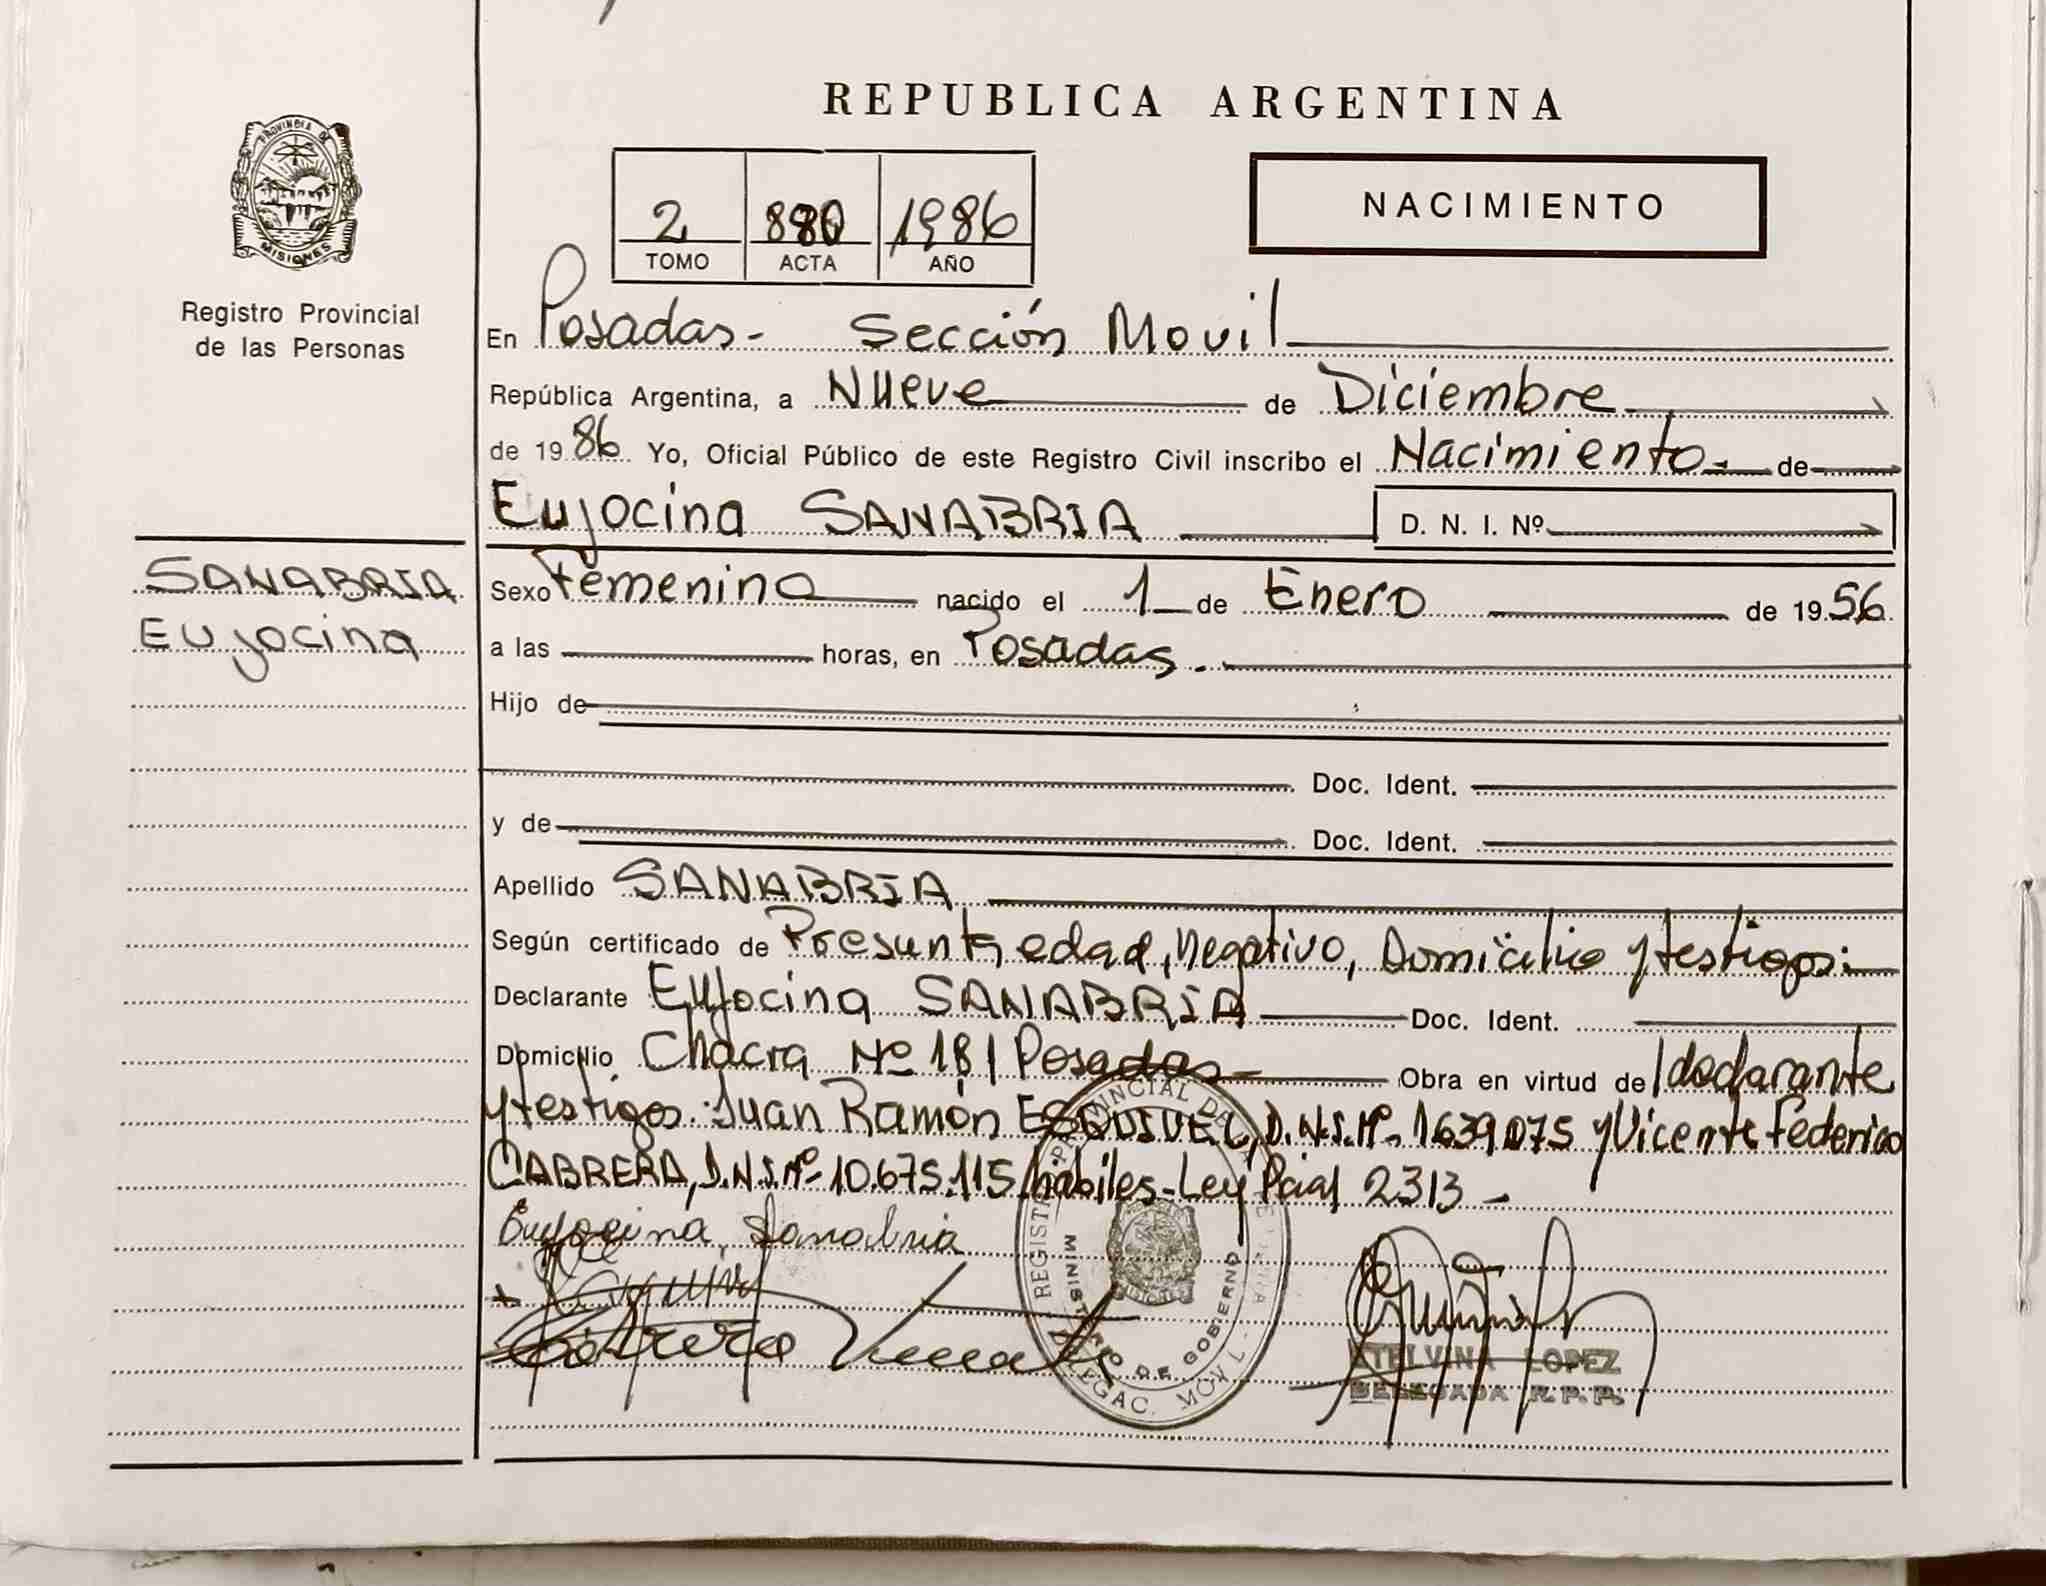 REPUBLICA ARGENTINA
PROVINCIA DE
MISIONES
Registro Provincial
de las Personas
2 880 1986
TOMO ACTA AÑO
NACIMIENTO
En Posadas- Sección Movil
República Argentina, a Nueve de Diciembre
de 1986 Yo, Oficial Público de este Registro Civil inscribo el Nacimiento- de
Eujocina SANABRIA D. N. I. Nº
SANABRIA
Eujocina
Sexo Femenino nacido el 1 de Enero de 1956
a las horas, en Posadas.
Hijo de
Doc. Ident.
y de Doc. Ident.
Apellido SANABRIA
Según certificado de Presunta edad, Negativo, Domicilio y testigos:
Declarante Eujocina SANABRIA Doc. Ident.
Domicilio Chacra Nº 181 Posadas- Obra en virtud de declarante
y testigos: Juan Ramón ESQUIVEL, D.N.I.Nº- 1.639.075 y Vicente Federico
CABRERA, D.N.I.Nº- 10.675.115 hábiles-Ley Pcial 2313-
Eujocina Sanabria
Cabrera Vicente
MINISTERIO DE GOBIERNO
ETELVINA LOPEZ
DELEGADA R.P.P.